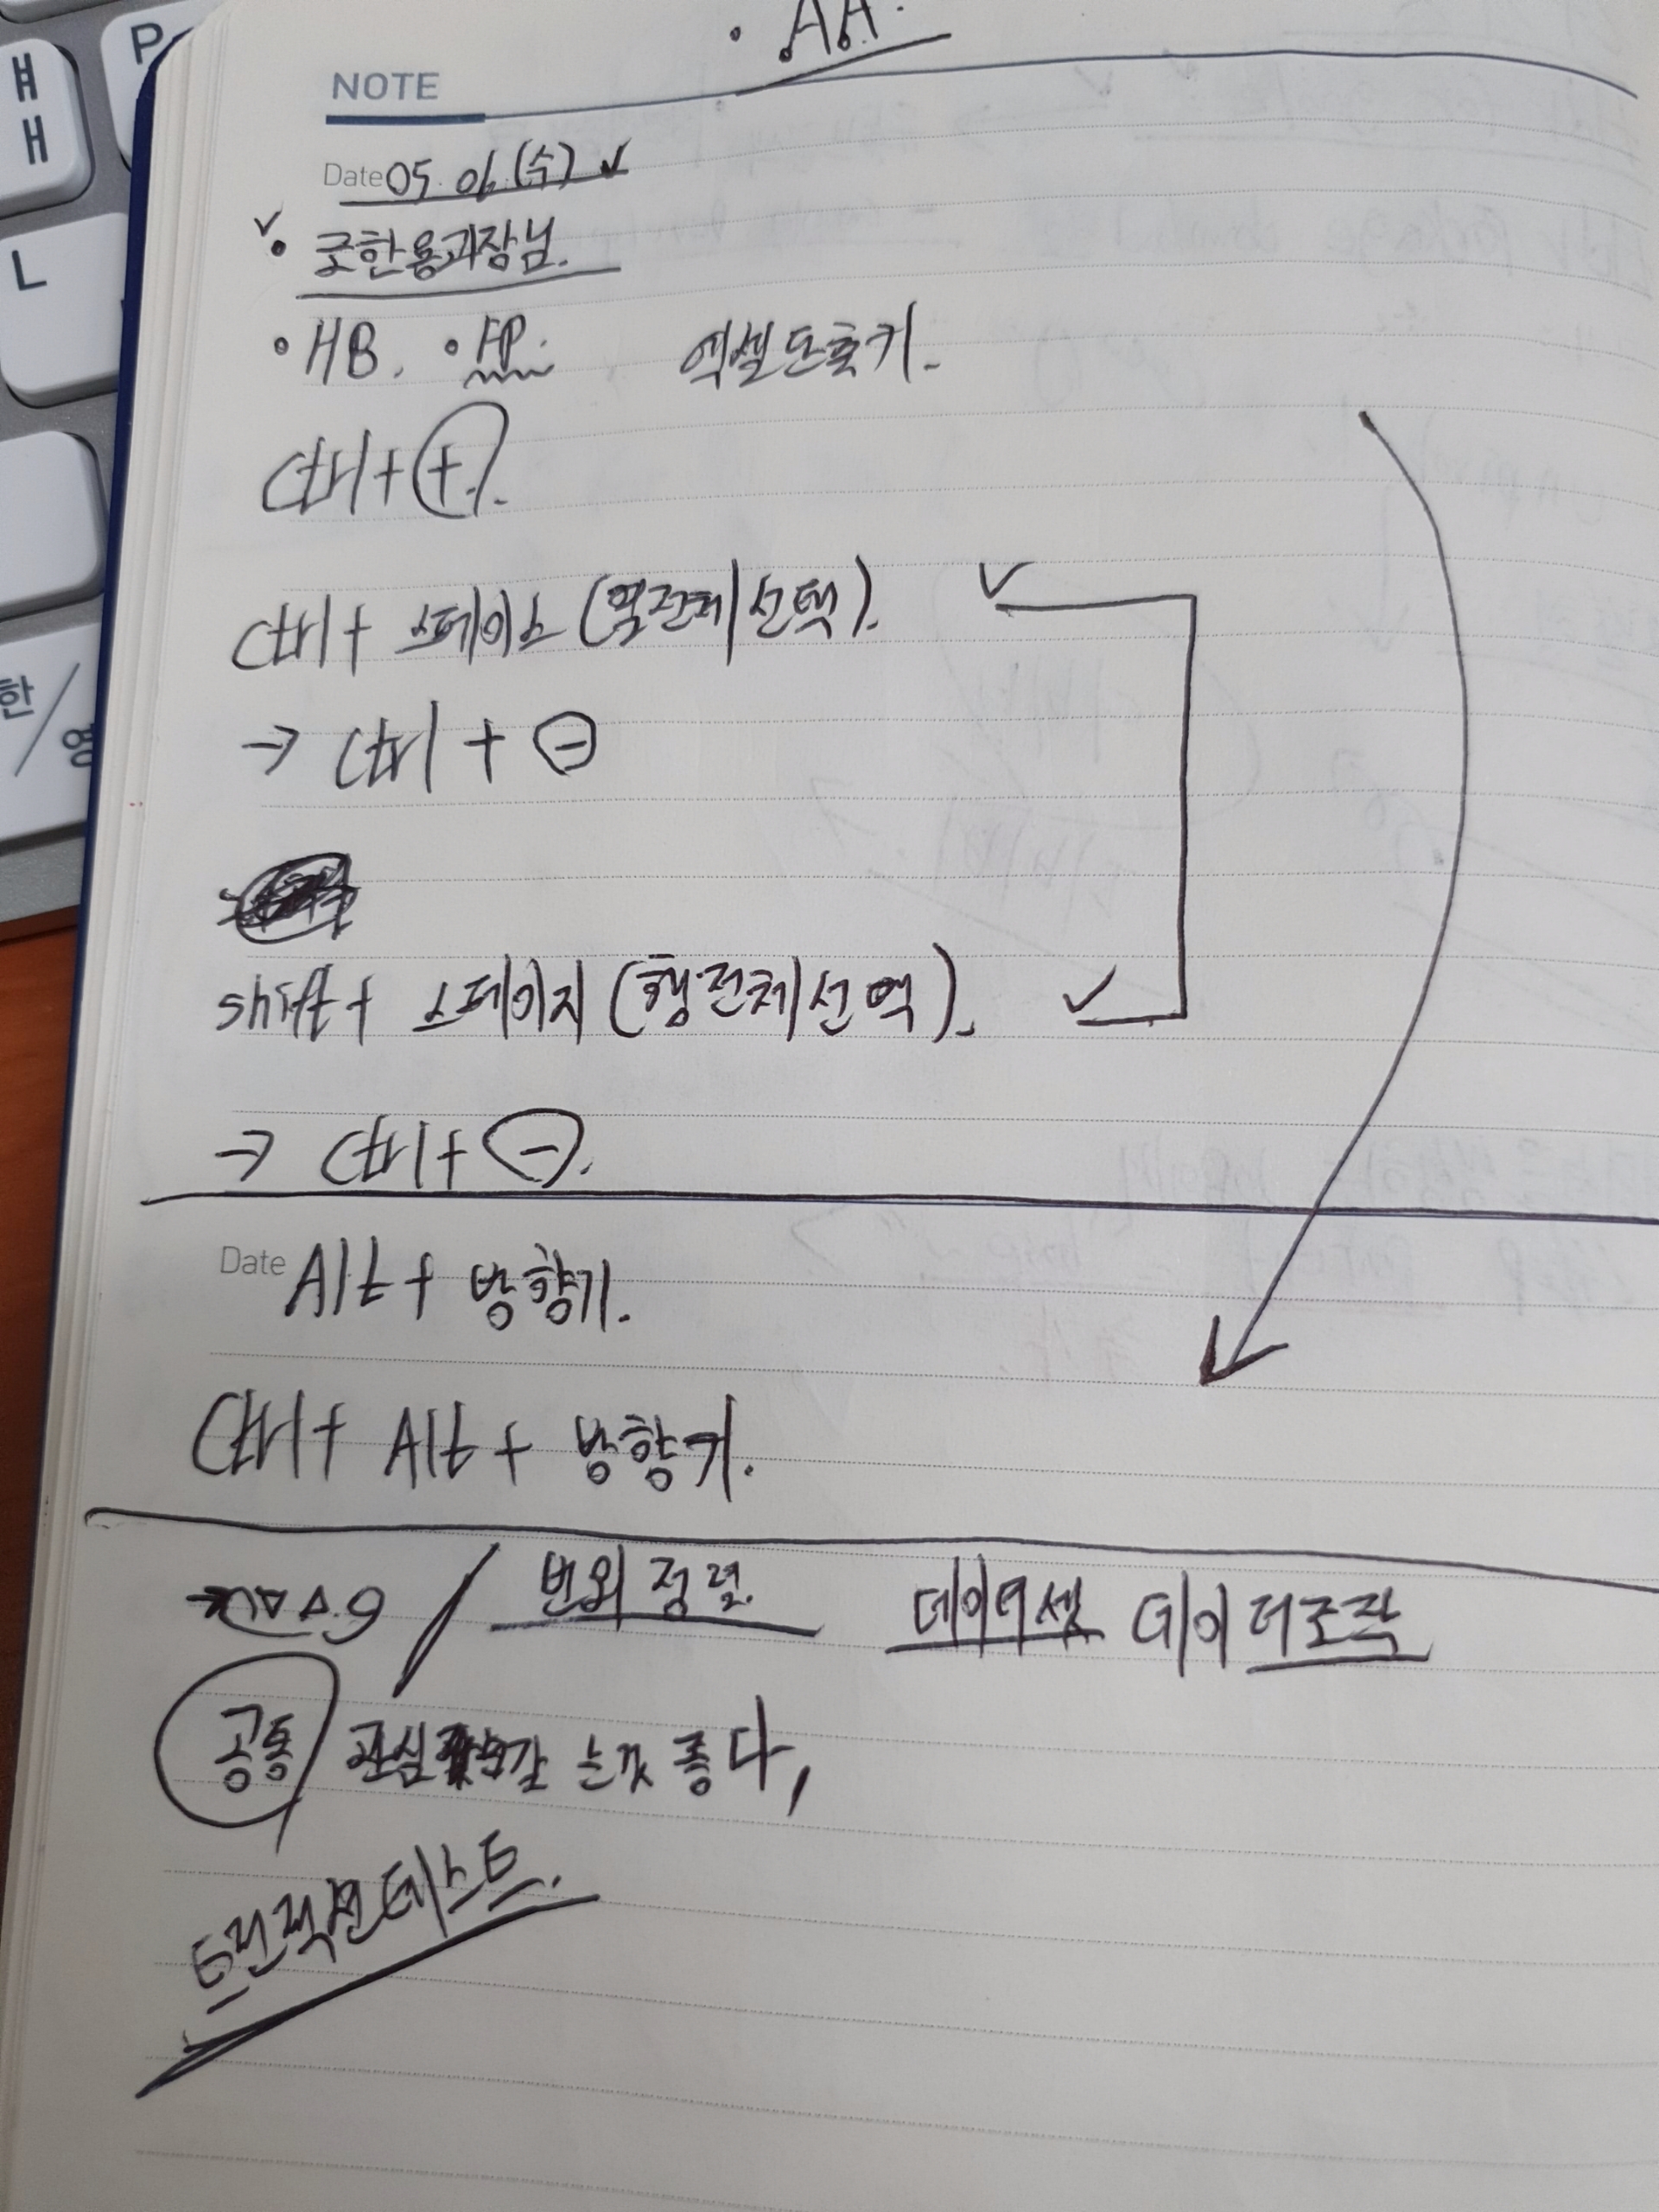 · AA.
NOTE
Date 05. 06. (수) ✓
✓ · 국한용과장님.
· HB. · FP. 엑셀단축키.
Ctrl + +.
Ctrl + 스페이스 (열전체선택). ✓
→ Ctrl + -
shift + 스페이지 (행전체선택). ✓
→ Ctrl + -.
Date Alt + 방향키.
Ctrl + Alt + 방향키.
/ 번외 정렬. 데이터셋 데이터조작
공통 관심 갖는것 좋다,
트랜젝션테스트.
P
ㅒ
ㅐ
L
한/영